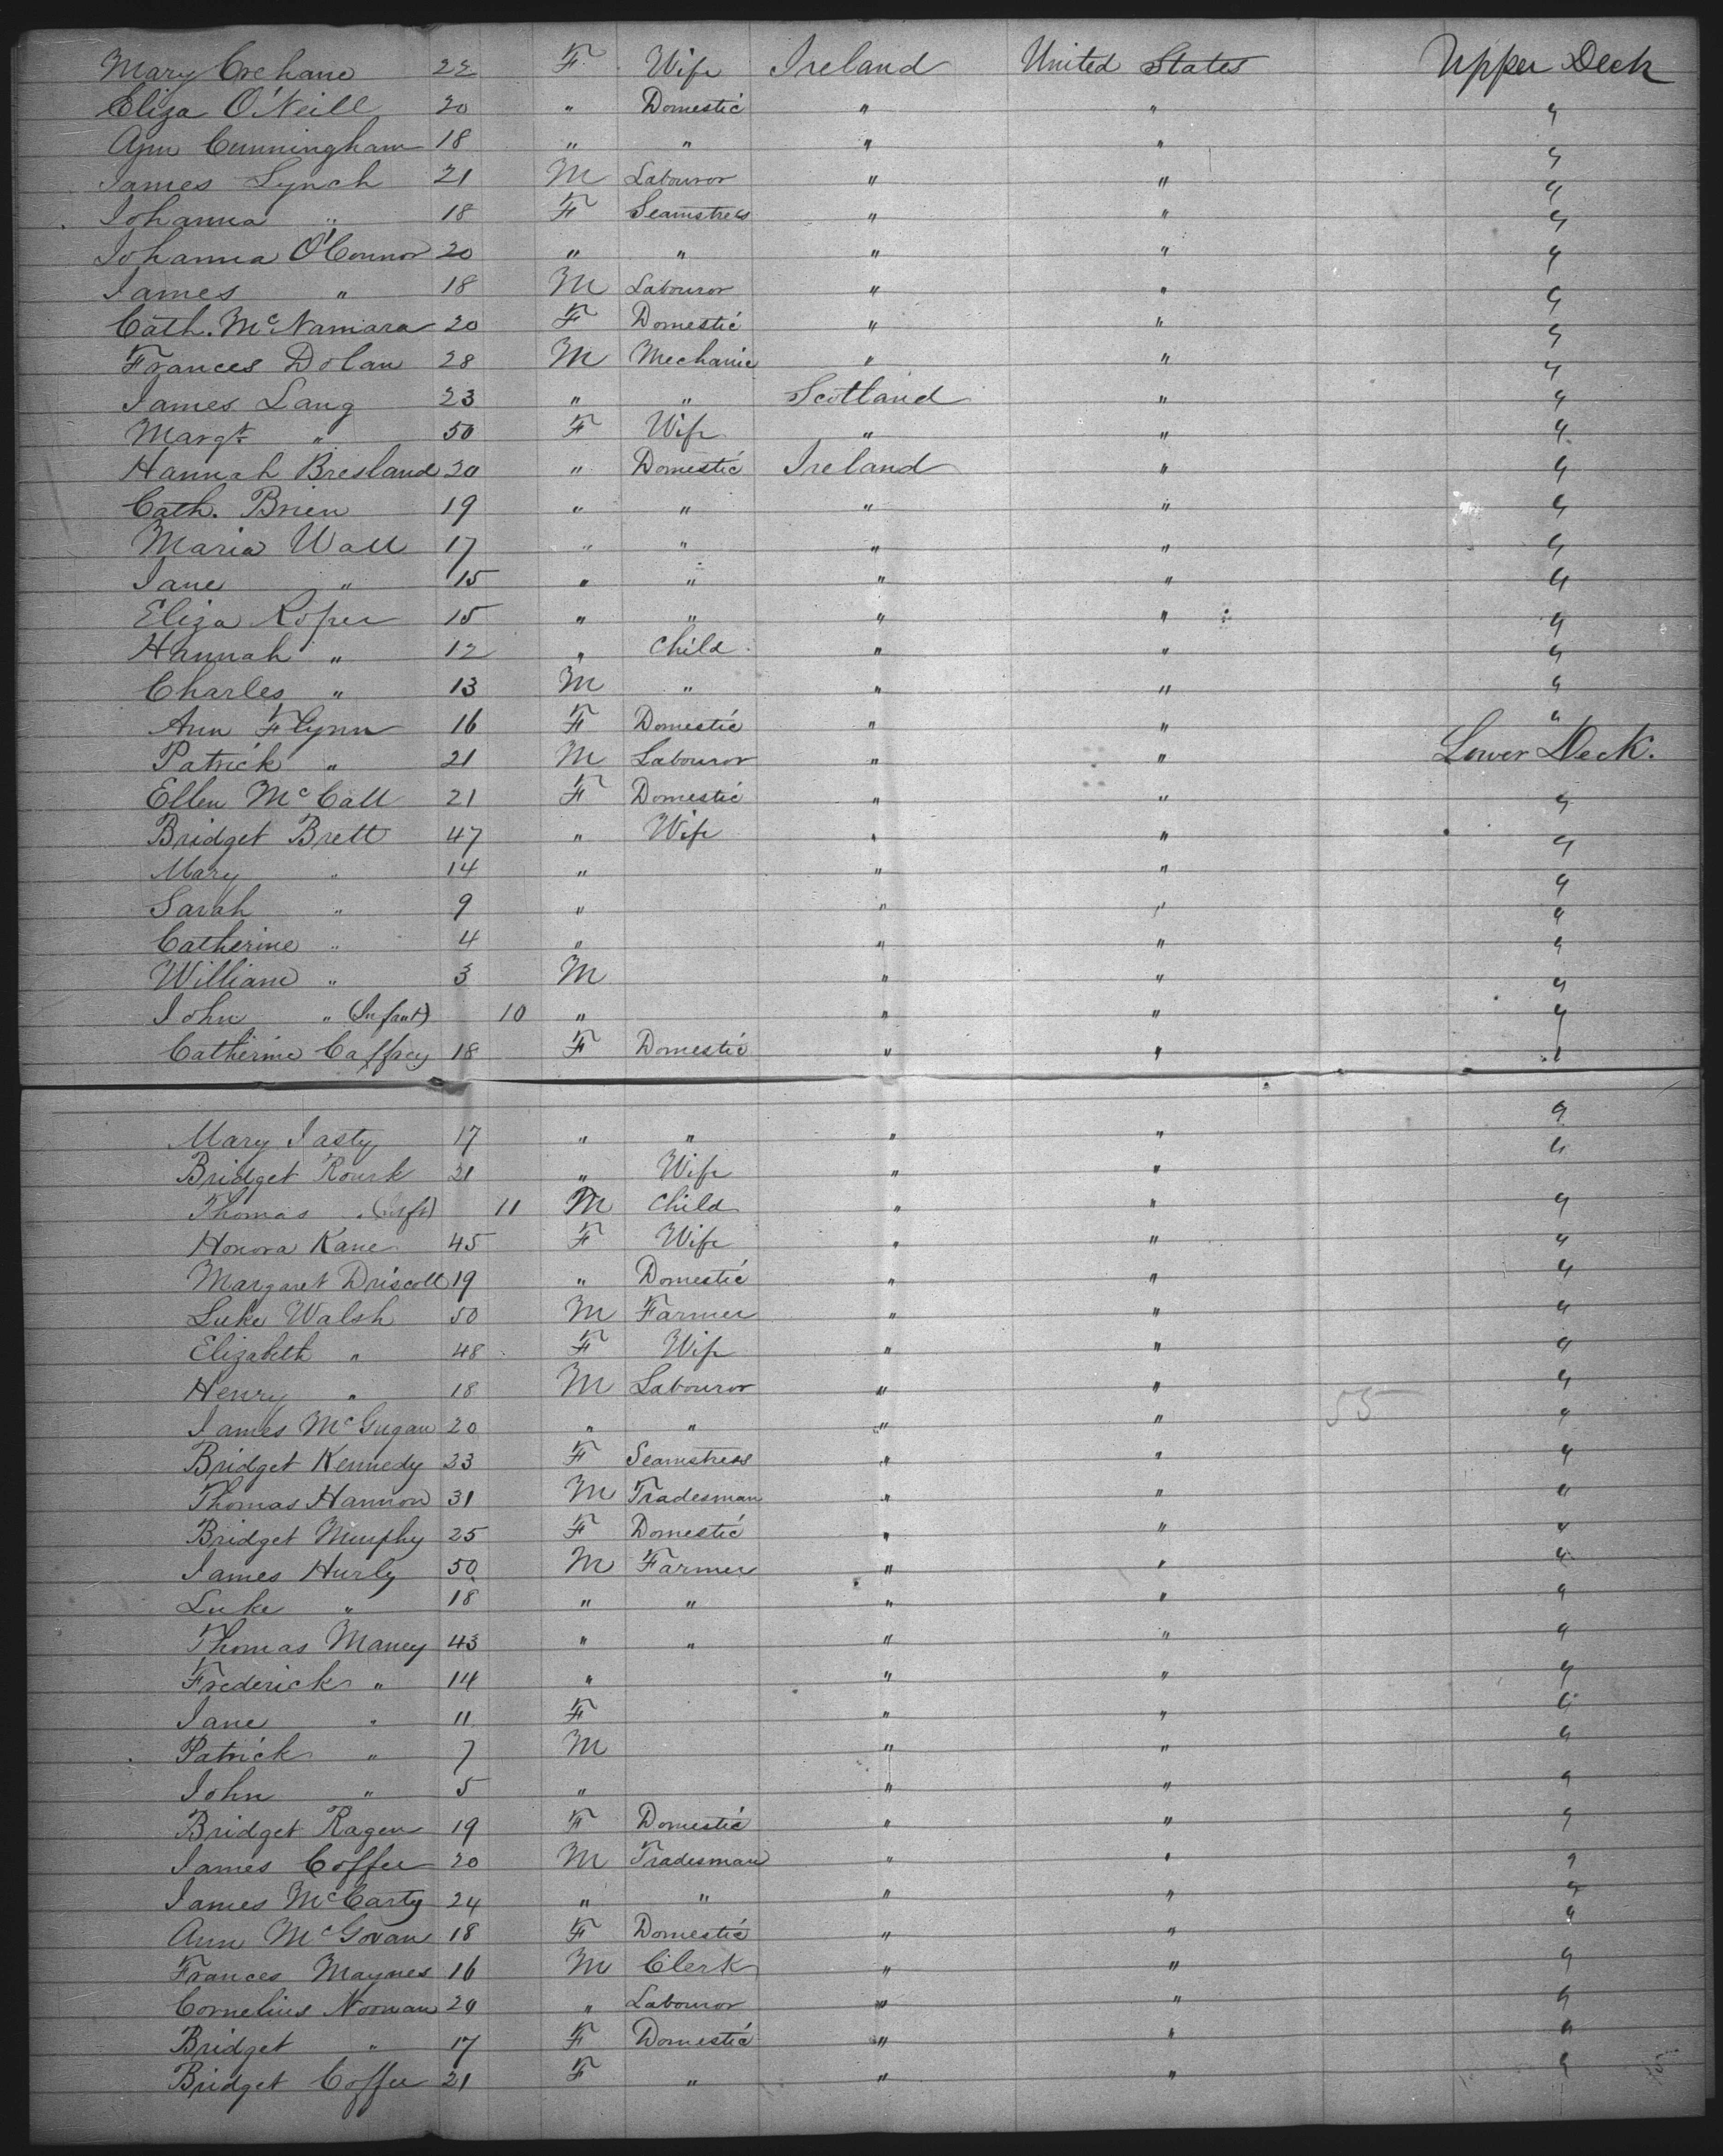 Mary Crehane 22 F Wife Ireland United States Upper Deck
Eliza O'Neill 20 " Domestic " " "
Ann Cunningham 18 " " " " "
James Lynch 21 M Labouror " " "
Johanna " 18 F Seamstress " " "
Johanna O'Connor 20 " " " " "
James " 18 M Labouror " " "
Cath. McNamara 20 F Domestic " " "
Frances Dolan 28 M Mechanic " " "
James Lang 23 " " Scotland " "
Margt " 50 F Wife " " "
Hannah Bresland 20 " Domestic Ireland " "
Cath. Brien 19 " " " " "
Maria Wall 17 " " " " "
Jane " 15 " " " " "
Eliza Roper 15 " " " " "
Hannah " 12 " Child " " "
Charles " 13 M " " " "
Ann Flynn 16 F Domestic " " "
Patrick " 21 M Labouror " " Lower Deck.
Ellen McCall 21 F Domestic " " "
Bridget Brett 47 " Wife " " "
Mary " 14 " " " "
Sarah " 9 " " " "
Catherine " 4 " " " "
William " 3 M " " "
John " (Infant) 10 " " " "
Catherine Caffrey 18 F Domestic " " "
Mary 17 " " " " "
Bridget Rourk 21 " Wife " " "
Thomas " (Inft) 11 M Child " " "
Honora Kane 45 F Wife " " "
Margaret Driscoll 19 " Domestic " " "
Luke Walsh 50 M Farmer " " "
Elizabeth " 48 F Wife " " "
Henry " 18 M Labouror " " "
James McGugan 20 " " " " 55 "
Bridget Kennedy 23 F Seamstress " " "
Thomas Hannon 31 M Tradesman " " "
Bridget Murphy 25 F Domestic " " "
James Hurly 50 M Farmer " " "
Luke " 18 " " " " "
Thomas Maney 43 " " " " "
Frederick " 14 " " " "
Jane " 11 F " " "
Patrick " 7 M " " "
John " 5 " " " "
Bridget Ragen 19 F Domestic " " "
James Coffee 20 M Tradesman " " "
James McCarty 24 " " " " "
Ann McGovan 18 F Domestic " " "
Frances Maynes 16 M Clerk " " "
Cornelius Noonan 20 " Labouror " " "
Bridget " 17 F Domestic " " "
Bridget Coffee 21 F " " " "